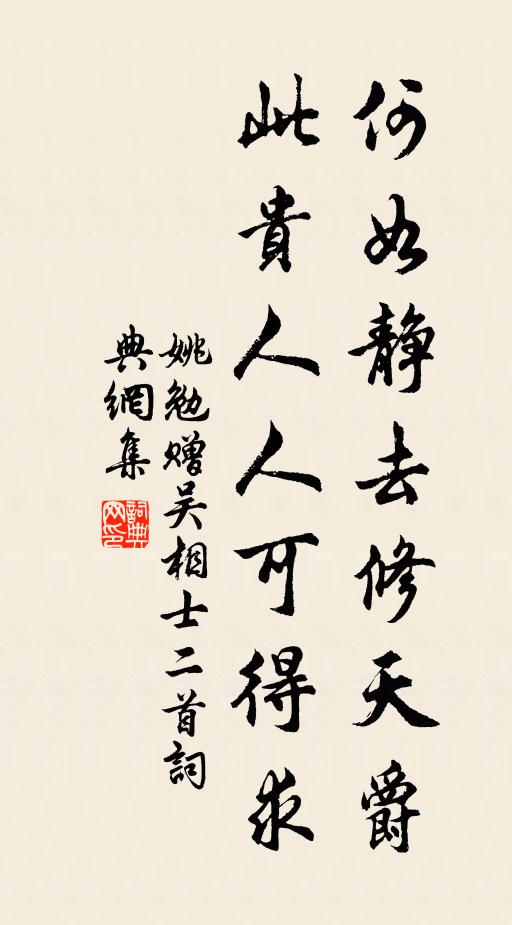 何如静去修天爵
此貴人人可得求
姚勉赠吴相士二首詞
典網集
詞典网印